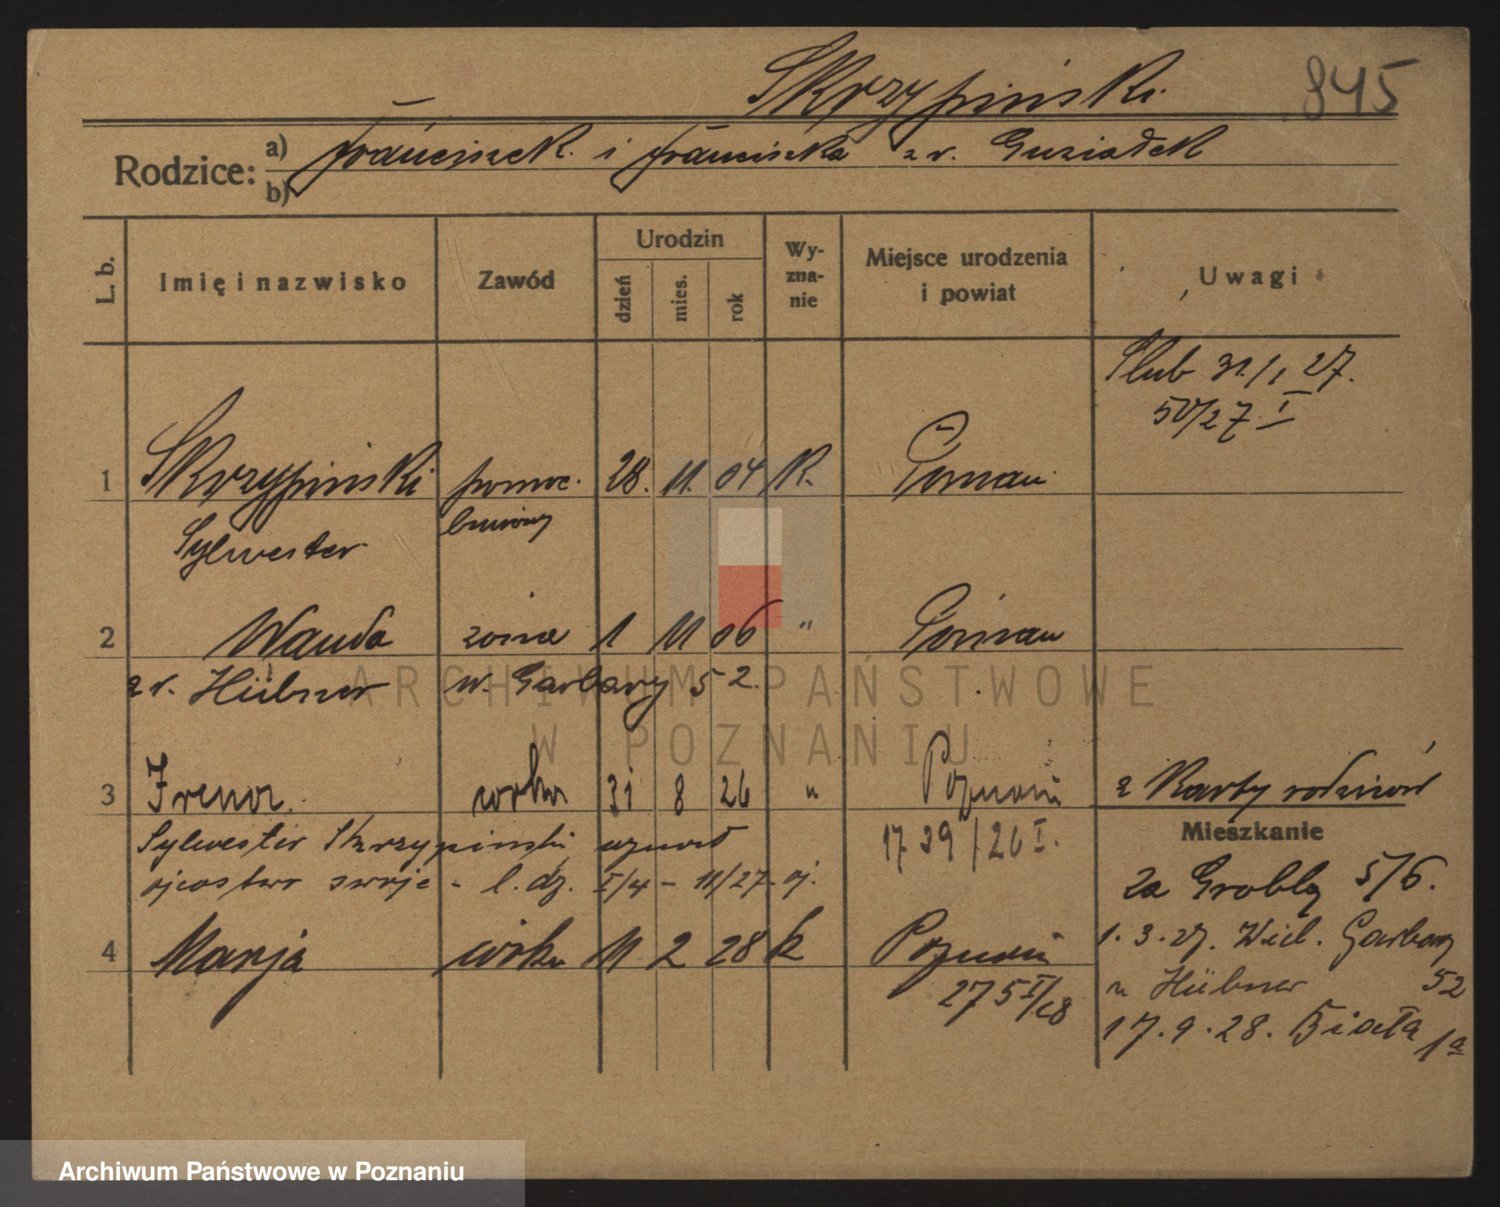 Skrzypiński 845
Rodzice: a) Franciszek i Franciszka z r. Guziałek
b)
L. b. Imię i nazwisko Zawód Urodzin dzień mies. rok Wyznanie Miejsce urodzenia i powiat Uwagi
Ślub 31/1 27.
50/27 I
1 Skrzypiński pomoc. 28. 11. 04 K. Poznań
Sylwester biurowy
2 Wanda żona 1 11 06 " Poznań
z r. Hübner W. Garbary 52.
3 Irena córka 31 8 26 " Poznań z Karty rodziców
1739/26 I.
Sylwester Skrzypiński uznał
ojcostwo swoje - l. dz. I/4 - 11/27
Mieszkanie
Za Groblą 5/6.
4 Marja córka 11 2 28 k Poznań
275 I/28
1. 3. 27. Wiel. Garbary
u Hübner 52
17. 9. 28. Biała 1a
ARCHIWUM PAŃSTWOWE
W POZNANIU
Archiwum Państwowe w Poznaniu